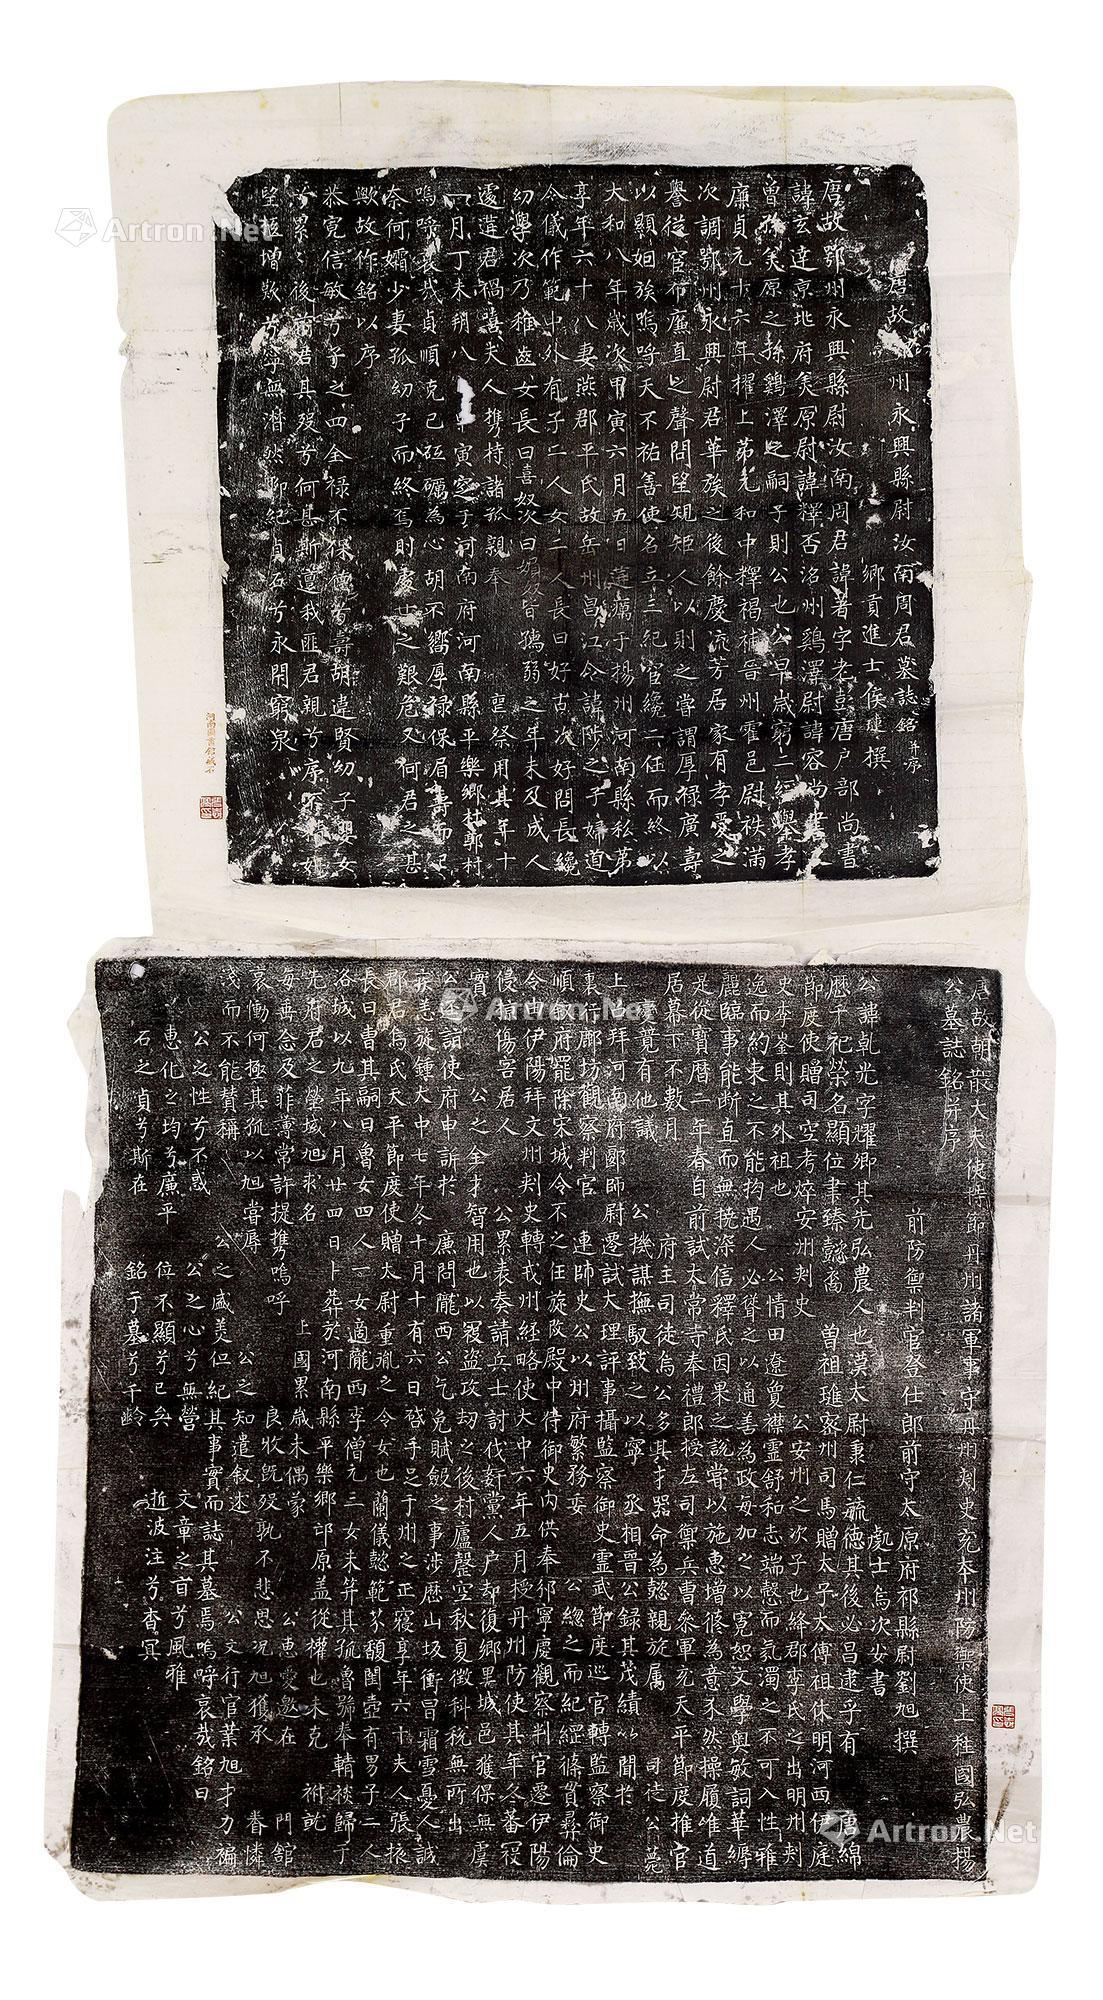 唐故 州永興縣尉汝南周君墓誌銘 并序
鄉貢進士侯璉撰
唐故鄂州永興縣尉汝南周君諱著字老彭唐户部尚書
諱玄達京兆府美原尉諱釋否洺州鷄澤尉諱容尚書
曾孫美原之孫鷄澤之嗣子則公也公早歲窮二經舉孝
廉貞元十六年擢上第元和中釋褐補晉州霍邑尉秩滿
次調鄂州永興尉君華族之後餘慶流芳居家有孝愛之
譽從官布廉直之聲問望規矩人以則之嘗謂厚禄廣壽
以顯姻族嗚呼天不祐善使名立三紀官纔二任而終以
大和八年歲次甲寅六月五日遘癘于揚州河南縣私第
享年六十八妻燕郡平氏故岳州昌江令諱陟之子婦道
令儀作範中外有子二人女二人長曰好古次好問長纔
幼學次乃稚齒女長曰喜奴次曰 皆孺弱之年未及成人
遽遘君禍嘻夫人携持諸孤親奉 靈祭用其年十
一月丁未朔八 寅窆于河南府河南縣平樂鄉杜郭村
嗚噫哀哉貞順克己砥礪為心胡不嚮厚禄保眉壽而
奈何孀少妻孤幼子而終焉則處世之艱危又何君之甚
歟故作銘以序
恭寬信敏兮子之四全禄不保德兮壽胡違賢幼子嬰女
兮累々後 君其歿兮何甚斯邅我匪君親兮序不
堅 增歎兮寧無潸然聊紀貞石兮永閉窮泉
河南圖書館藏石
唐故朝散大夫使持節丹州諸軍事守丹州刺史充本州防禦使上柱國弘農楊
公墓誌銘并序
前防禦判官登仕郎前守太原府祁縣尉劉旭撰
處士烏次安書
公諱乾光字耀卿其先弘農人也漢太尉秉仁毓德其後必昌逮乎有 唐綿
歷千祀榮名顯位書臻懿裔 曽祖璡密州司馬贈太子太傅祖休明河西伊庭
節度使贈司空考焠安州刺史 公安州之次子也絳郡李氏之出明州刺
史李崟則其外祖也 公情田遼夐襟靈舒和志端慤而氣濁之不可入性雅
逸而約束之不能拘遇人必聳之以通善為政每加之以寬恕文學輿敏詞華縟
麗臨事能断直而無撓深信釋氏因果之說嘗以施惠增修為意不然操履唯道
是從寶曆二年春自前試太常寺奉禮郎授左司禦兵曹叅軍充天平節度推官
居幕下不數月 府主司徒烏公多其才器命為懿親旋属 司徒公薨
薨竟有他議 公機謀撫馭致之以寧 丞相晉公録其茂績以聞於
上 拜河南府郾師尉遷試大理評事攝監察御史靈武節度巡官轉監察御史
裏行鄜坊觀察判官 連師史公以州府繁務委 公緫之而紀䌫條貫彛倫
順敘府罷除宋城令不之任旋改殿中侍御史内供奉邠寧慶觀察判官遷伊陽
令由伊陽拜文州刾史轉戎州経略使大中六年五月授丹州防使其年冬蕃寇
侵 傷害居人 公累表奏請兵士討伐姧黨人户却復鄉里城邑獲保無虞
實 公之全才智用也以冦盗攻刧之後村廬罄空秋夏徴科税無所出
公 詣使府申訴於 廉問隴西公乞免賦斂之事涉歷山坂衝冒霜雪憂人誠
疾恙旋鍾大中七年冬十月十有六日啓手足于州之正寢享年六十夫人張掖
郡君烏氏天平節度使贈太尉重胤之令女也蘭儀懿範芬馥閨壼有男子二人
長曰曹其嗣曰魯女四人一女適隴西李僧元三女未笄其孤魯號奉輤祾歸丁
洛城以九年八月廿四日卜葬於河南縣平樂鄉邙原盖從權也未克 祔 
先府君之塋域旭求名 上國累歳未偶蒙 公惠愛邀在 門館
每垂念及菲薄常許提携嗚呼 良牧既歿孰不悲思况旭獲承 眷憐
哀慟何極其孤以旭嘗辱 公之知遣叙述 公文行官業旭才力褊
淺而不能賛稱 公之盛美但紀其事實而誌其墓焉嗚呼哀哉銘曰
公之性兮不惑 公之心兮無營 文章之首兮風雅
惠化之均兮廉平 位不顯兮已矣 逝波注兮杳冥
石之貞兮斯在 銘于墓兮千齡
Artron.Net
Artron.Net
Artron.Net